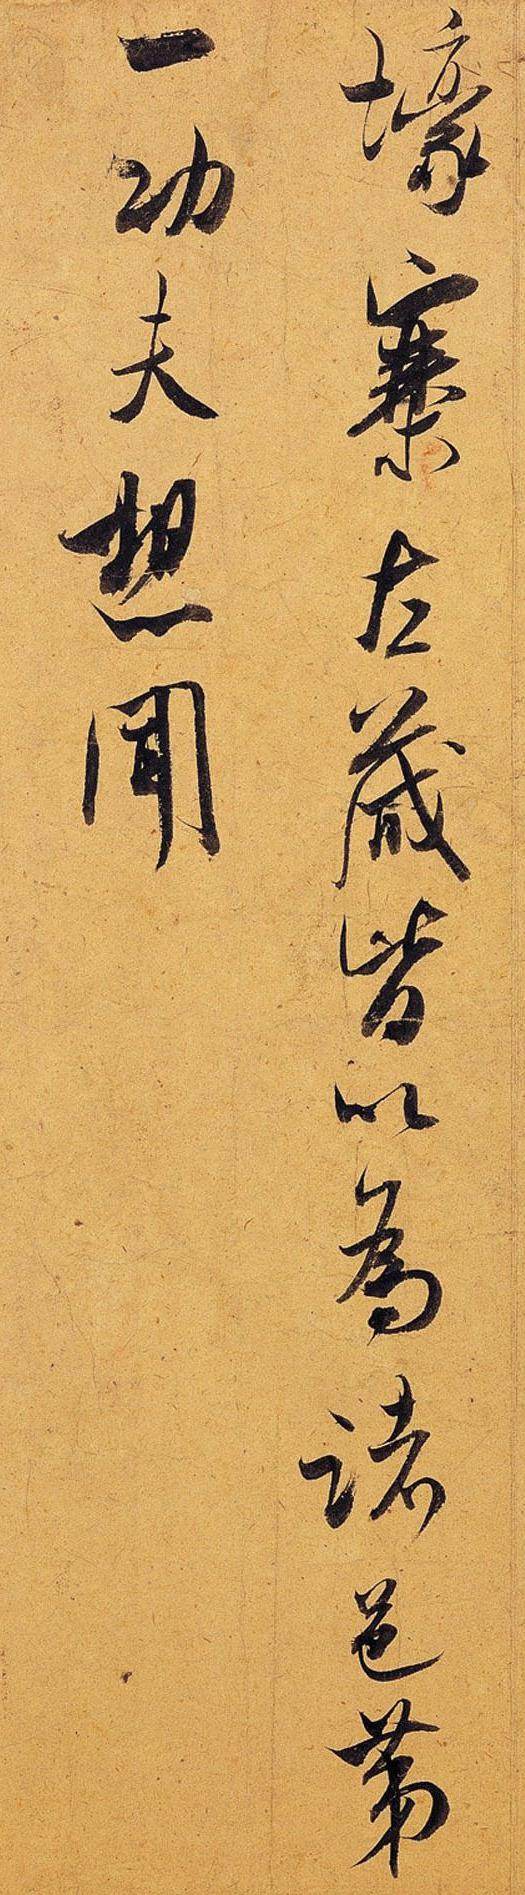 壕寨左藏皆以為諸邑第
一功夫想聞